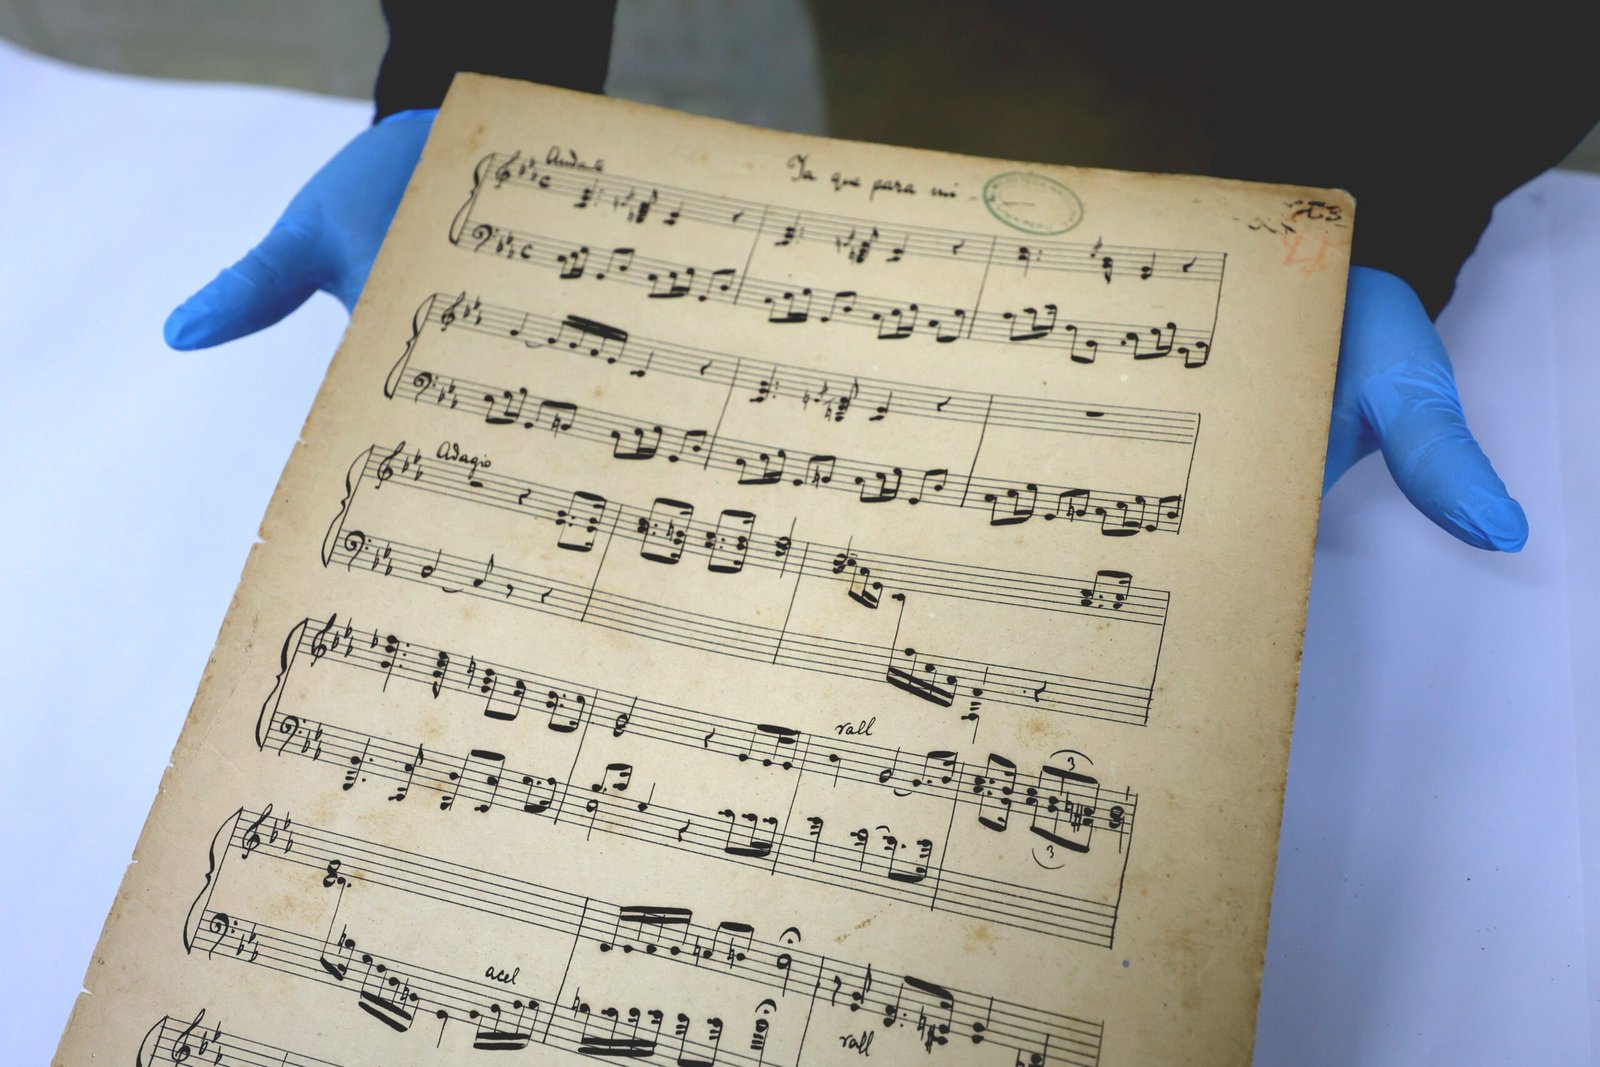 Andante
Ya que para mi -
Adagio
rall
3
3
acel
rall